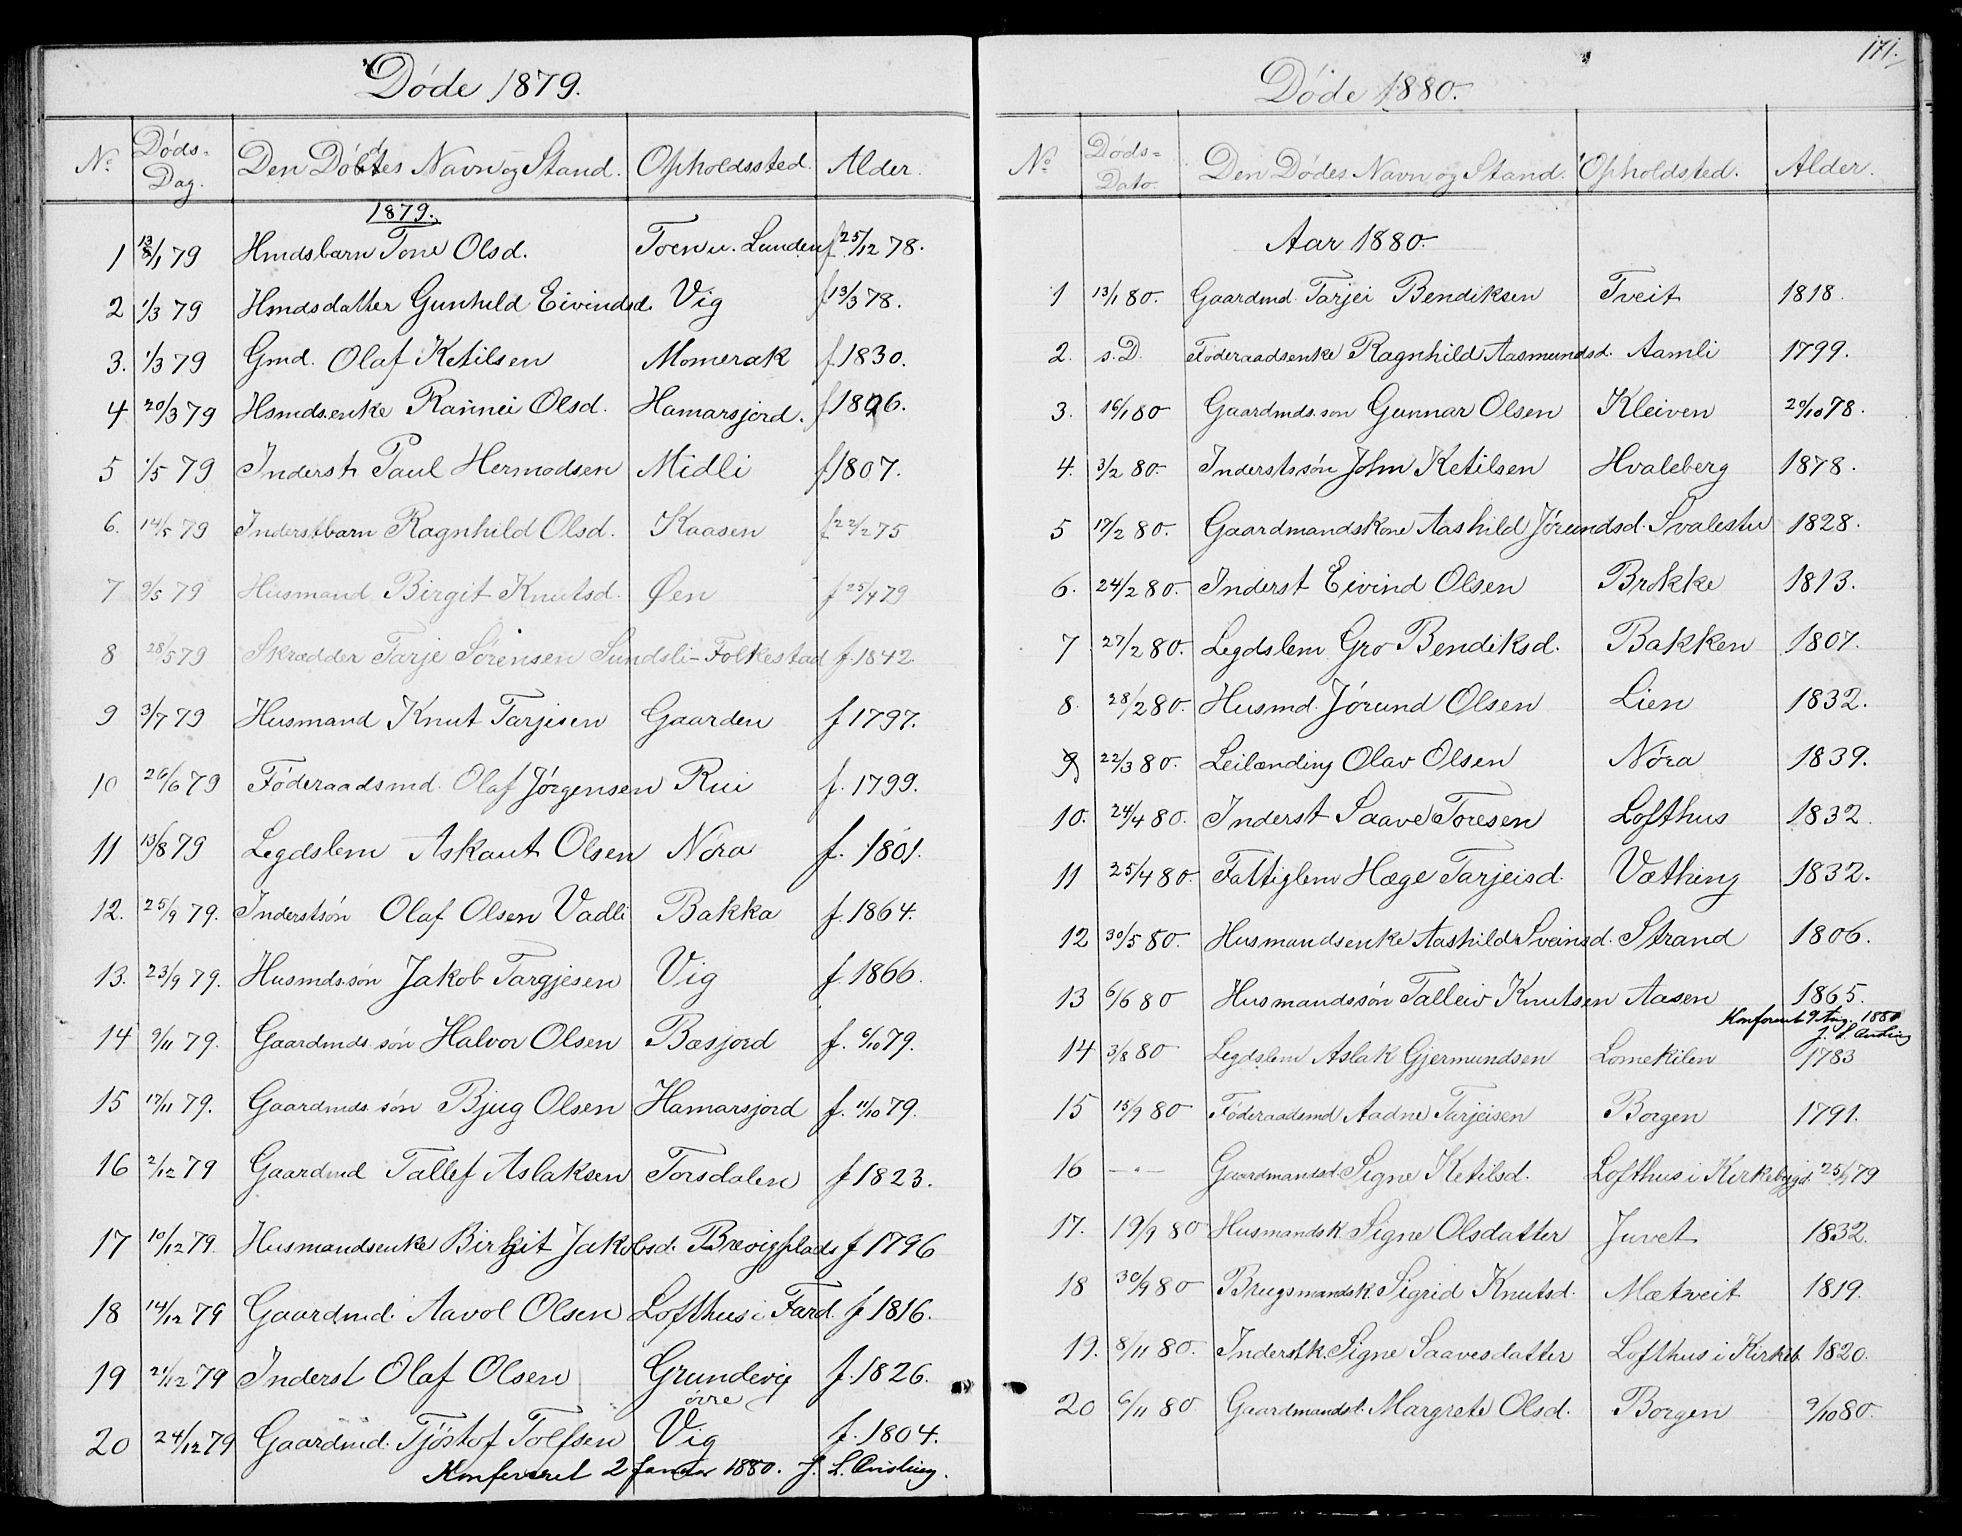 Døde 1879.
No. Døds-Dag. Den Dødes Navn og Stand. Opholdssted. Alder.
1879.
1 13/1 79 Hmdsbarn Tone Olsd. Toen u. Lunden f 25/12 78.
2 1/3 79 Hmdsdatter Gunhild Eivindsd. Vig f 13/3 78.
3. 1/3 79 Gmd. Olaf Ketilsen Momerak f 1830.
4 20/3 79 Hsmds.enke Rannei Olsd. Hamarsjord. f 1806.
5 1/5 79 Inderst Paul Hermodsen Midli f 1807.
6. 14/5 79 Inderstbarn Ragnhild Olsd. Kaasen f 22/2 75
7 9/5 79 Husmand Birgit Knutsd. Øen f 25/4 79
8 28/5 79 Skrædder Tarje Sørensen Sundsli-Folkestad f. 1842.
9 3/7 79 Husmand Knut Tarjesen Gaarden f 1797.
10 26/6 79 Føderaadsmd. Olaf Jørgensen Rui f. 1799.
11 13/8 79 Legdslem Askaut Olsen Nóra f. 1801.
12. 25/9 79. Inderstsón Olaf Olsen Vadli Bakka f. 1864.
13. 23/9 79. Husmds.søn Jakob Targjesen Vig f. 1866.
14 9/11 79. Gaardmds. søn Halvor Olsen Bæsjord f. 6/10 79.
15 17/11 79. Gaardmds. søn Bjug Olsen Hamarsjord f. 11/10 79.
16 2/12 79 Gaardmd Tallef Aslaksen Torsdalen f 1823.
17 10/12 79 Husmandsenke Birgit Jakobsd. Brævigplads f 1796
18 14/12 79 Gaardmd. Aavol Olsen Lofthus i Fard. f 1816.
19 21/12 79 Inderst Olaf Olsen Grundevig f. 1826.
øvre
20 24/12 79 Gaardmd. Tjøstof Tolfsen Vig f. 1804.
Konfereret 2 Januar 1880. J. L.
171.
Døde 1880.
No. Døds-Dato. Den Dødes Navn og Stand. Opholdsted. Alder.
Aar 1880.
1 13/1 80. Gaardmd. Tarjei Bendiksen Tveit 1818.
2. s. D. Føderaadsenke Ragnhild Aasmundsd. Aamli 1799.
3. 16/1 80 Gaardmds. son Gunnar Olsen Kleiven 20/10 78.
4. 3/2 80. Inderstssøn John Ketilsen Hvaleberg 1878.
5 17/2 80. Gaardmandskone Aashild Jørundsd. Svalestu 1828.
6. 24/2 80. Inderst Eivind Olsen Brokke 1813.
7 27/2 80. Legdslem Gro Bendiksd. Bakken 1807.
8. 28/2 80. Husmd. Jørund Olsen Lien 1832.
9 22/3 80. Leilending Olav Olsen Nóra 1839.
10. 24/4 80. Inderst Saave Toresen Lofthus 1832
11 25/4 80. Fattiglem Hæge Tarjeisd. Væthing 1832.
12 30/5 80. Husmandsenke Aashild Sveinsd. Strand 1806.
13 6/6 80 Husmandssøn Talleiv Knutsen Aasen 1865.
Konfereret 9 Aug. 1880
J. L.
14 3/8 80 Legdslem Aslak Gjermundsen Lomekilen 1783
15 15/9 80 Føderaadsmd Aadne Tarjeisen Borgen 1791.
16 — " — Gaardmandsd. Signe Ketilsd. Lofthus i Kirkebygd. 25/1 79
17. 19/9 80 Husmandsk. Signe Olsdatter Juvet 1832.
18 30/9 80 Brugsmandsk. Sigrid Knutsd. Mætveit 1819.
19. 8/11 80. Inderstk. Signe Saavesdatter Lofthus i Kirkeb. 1820.
20 6/11 80 Gaardmandsd. Margrete Olsd. Borgen 9/10 80.